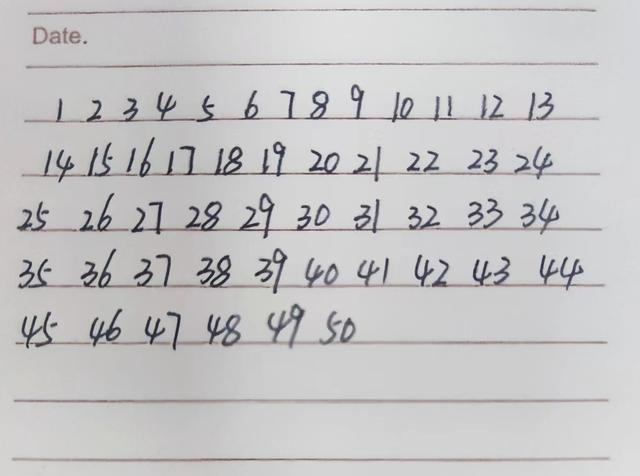 Date.
1 2 3 4 5 6 7 8 9 10 11 12 13
14 15 16 17 18 19 20 21 22 23 24
25 26 27 28 29 30 31 32 33 34
35 36 37 38 39 40 41 42 43 44
45 46 47 48 49 50